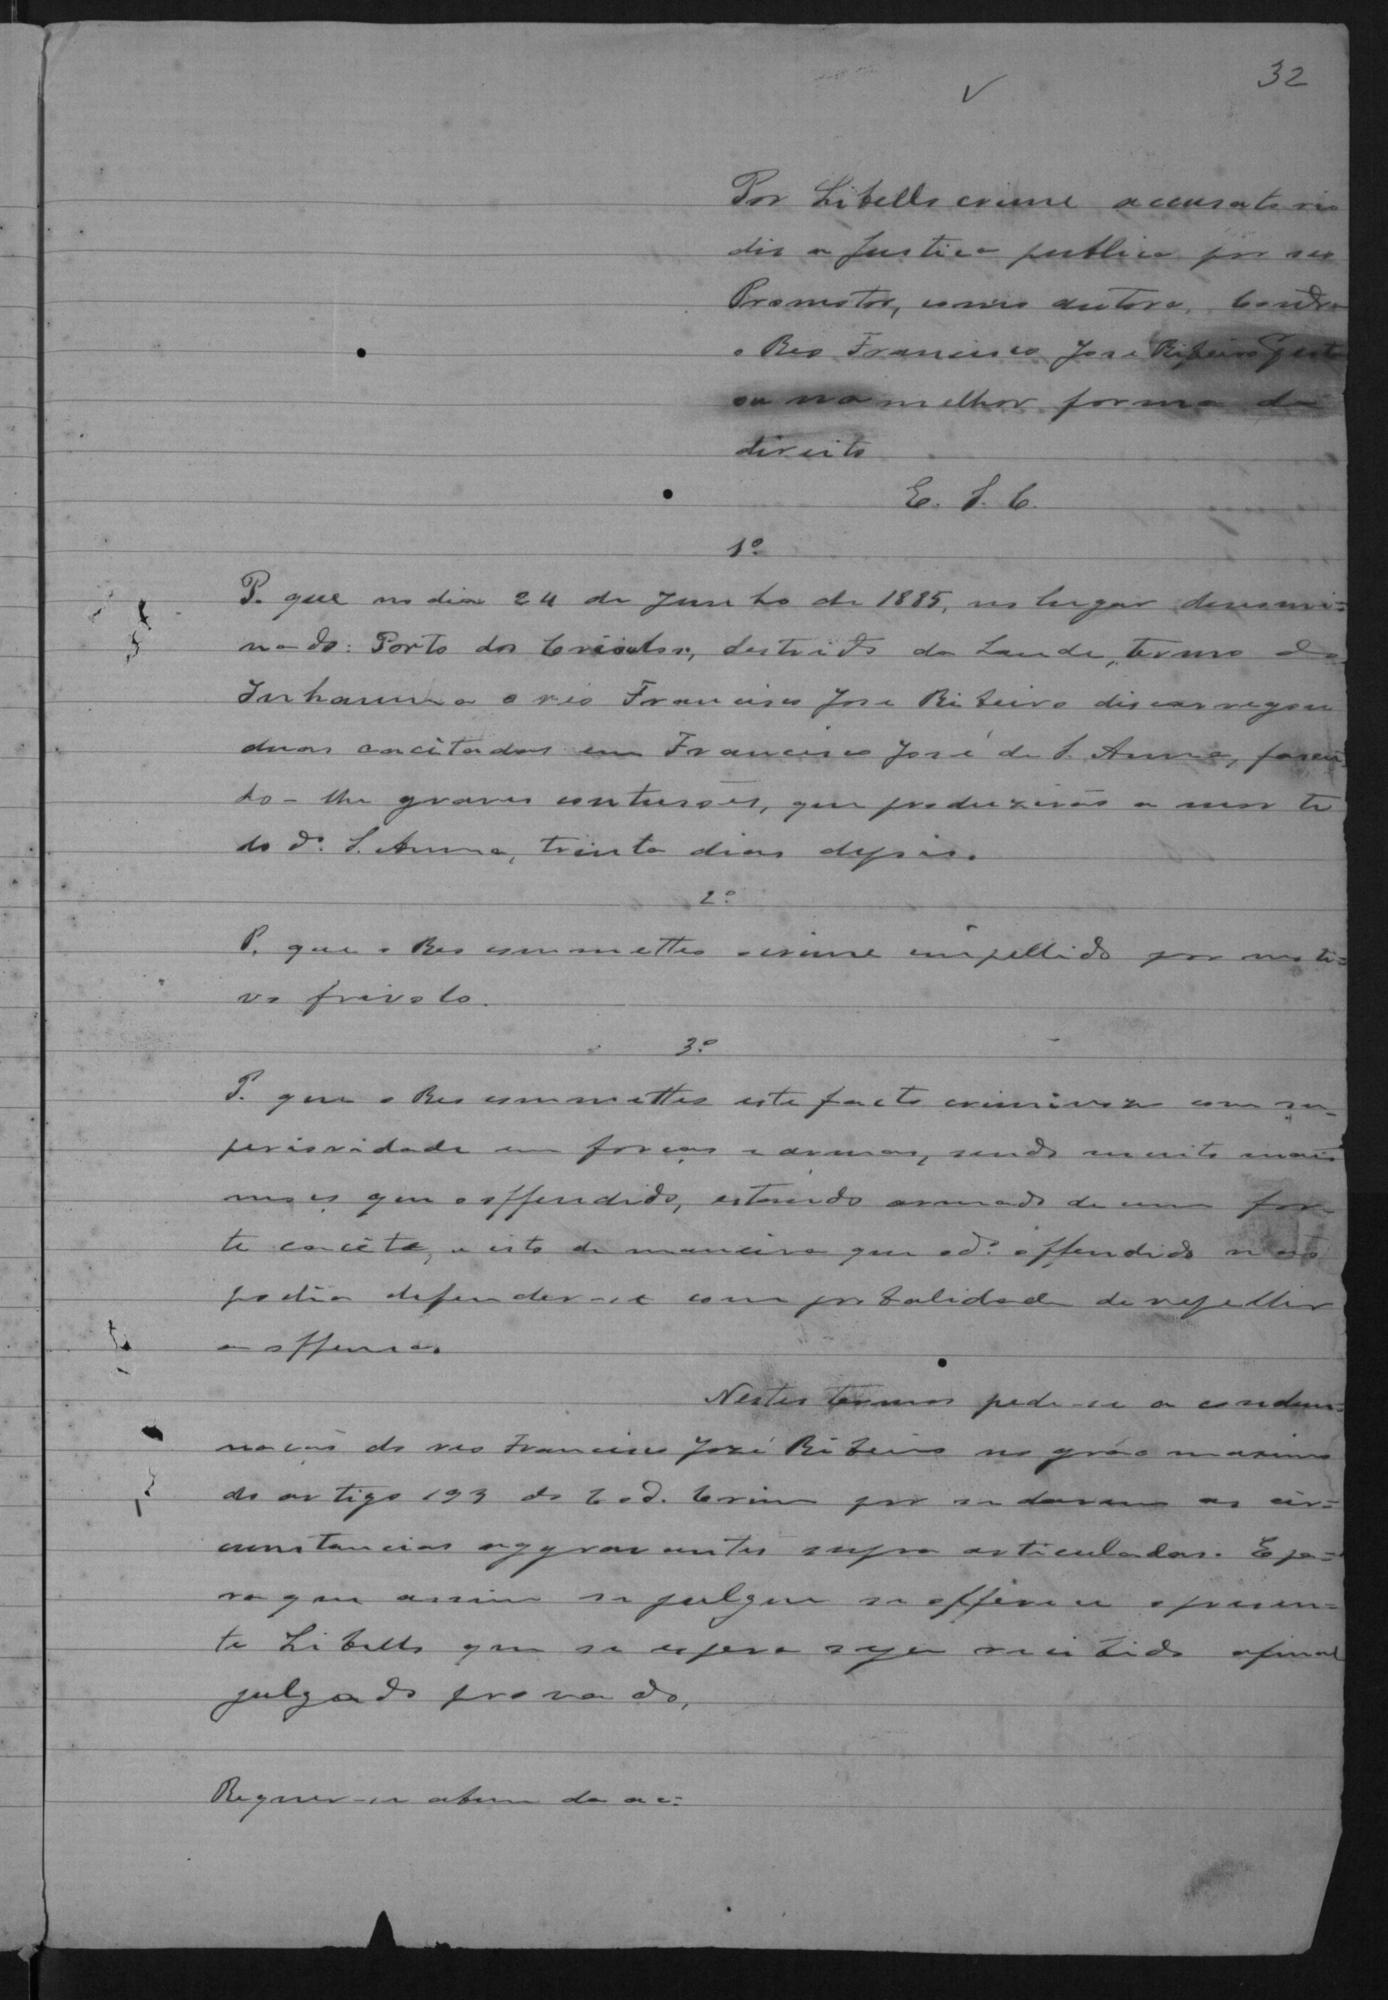 32
Por Libello crime accusatorio
diz a Justiça publica por seu
Promotor, como autora, contra
o Reo Francisco José Ribeiro
ou na melhor forma de
direito
E. S. C.
1º
P. que no dia 24 de Junho de 1885, no lugar denomi=
nado: Porto dos districto da termo de
Inhauma o reo Francisco José Ribeiro discarregou
duas cacêtadas em Francisco José de S. Anna, fasen
do-lhe graves contusões, que produzirão a morte
do dº. S. Anna, trinta dias depois.
2º
P. que o Reo commetteo o crime impellido por moti=
vo frivolo.
3º
P. que o Reo commetteo este facto criminoso com su-
perioridade em forças e armas, sendo muito mais
moço que o offendido, estando armado de um for-
te cacête, e isto de maneira que o dº. offendido não
podia defender-se com probalidade de repellir
a offensa.
Nestes termos pede-se a condem=
nação do reo Francisco José Ribeiro no gráo maximo
do artigo 193 do Cod. Crim. por se darem as cir=
cunstancias aggravantes supra articuladas. E pa=
ra que assim se julgue se offerece o presen=
te Libello que se espera seja recebido afinal
julgado provado,
Requer-se a bem da ac=